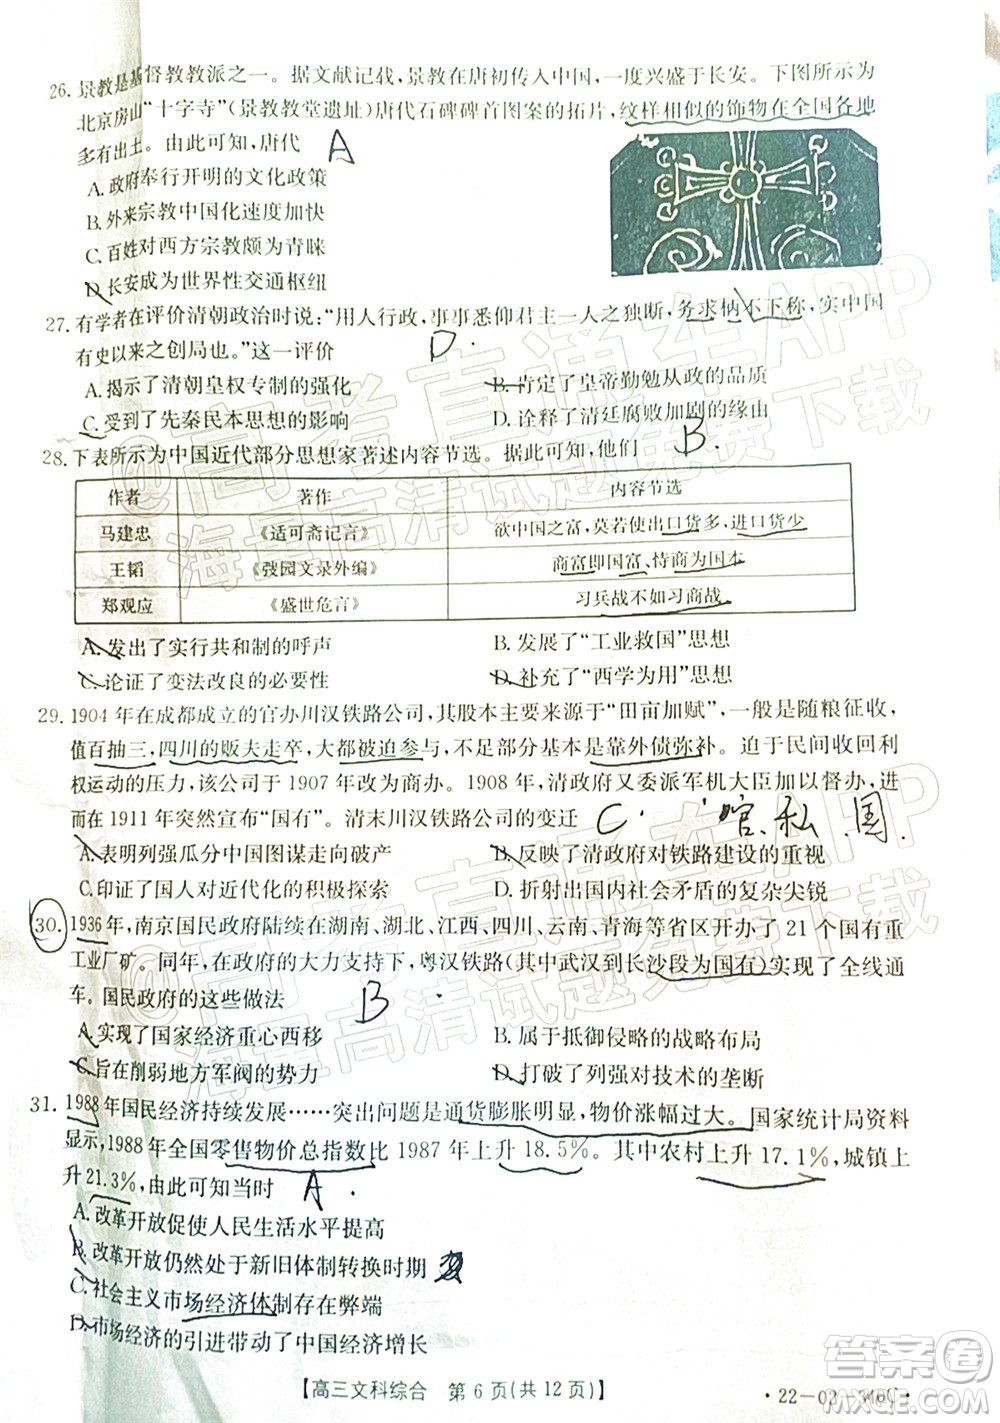 26. 景教是基督教教派之一。据文献记载,景教在唐初传入中国,一度兴盛于长安。下图所示为
北京房山“十字寺”(景教教堂遗址)唐代石碑碑首图案的拓片,纹样相似的饰物在全国各地
多有出土。由此可知,唐代 A
A. 政府奉行开明的文化政策
B. 外来宗教中国化速度加快
C. 百姓对西方宗教颇为青睐
D. 长安成为世界性交通枢纽
27. 有学者在评价清朝政治时说:“用人行政,事事悉仰君主一人之独断,务求枘不下称,实中国
有史以来之创局也。”这一评价 D.
A. 揭示了清朝皇权专制的强化 B. 肯定了皇帝勤勉从政的品质
C. 受到了先秦民本思想的影响 D. 诠释了清廷腐败加剧的缘由
28. 下表所示为中国近代部分思想家著述内容节选。据此可知,他们 B.
作者 著作 内容节选
马建忠 《适可斋记言》 欲中国之富,莫若使出口货多,进口货少
王韬 《弢园文录外编》 商富即国富、恃商为国本
郑观应 《盛世危言》 习兵战不如习商战
A. 发出了实行共和制的呼声 B. 发展了“工业救国”思想
C. 论证了变法改良的必要性 D. 补充了“西学为用”思想
29. 1904 年在成都成立的官办川汉铁路公司,其股本主要来源于“田亩加赋”,一般是随粮征收,
值百抽三,四川的贩夫走卒,大都被迫参与,不足部分基本是靠外债弥补。迫于民间要求收回利
权运动的压力,该公司于 1907 年改为商办。1908 年,清政府又委派军机大臣加以督办,进
而在 1911 年突然宣布“国有”。清末川汉铁路公司的变迁 C. 官、私 国.
A. 表明列强瓜分中国图谋走向破产 B. 反映了清政府对铁路建设的重视
C. 印证了国人对近代化的积极探索 D. 折射出国内社会矛盾的复杂尖锐
30. 1936年,南京国民政府陆续在湖南、湖北、江西、四川、云南、青海等省区开办了 21 个国有重
工业厂矿。同年,在政府的大力支持下,粤汉铁路(其中武汉到长沙段为国有)实现了全线通
车。国民政府的这些做法 B.
A. 实现了国家经济重心西移 B. 属于抵御侵略的战略布局
C. 旨在削弱地方军阀的势力 D. 打破了列强对技术的垄断
31. 1988年国民经济持续发展……突出问题是通货膨胀明显,物价涨幅过大。国家统计局资料
显示,1988 年全国零售物价总指数比 1987 年上升 18.5%。其中农村上升 17.1%,城镇上
升 21.3%,由此可知当时 A.
A. 改革开放促使人民生活水平提高
B. 改革开放仍然处于新旧体制转换时期
C. 社会主义市场经济体制存在弊端
D. 市场经济的引进带动了中国经济增长
【高三文科综合 第 6 页(共 12 页)】
高考直通车APP
海量高清试题免费下载
@高考直通车APP
海量高清试题免费下载
答案圈
MXQE.COM